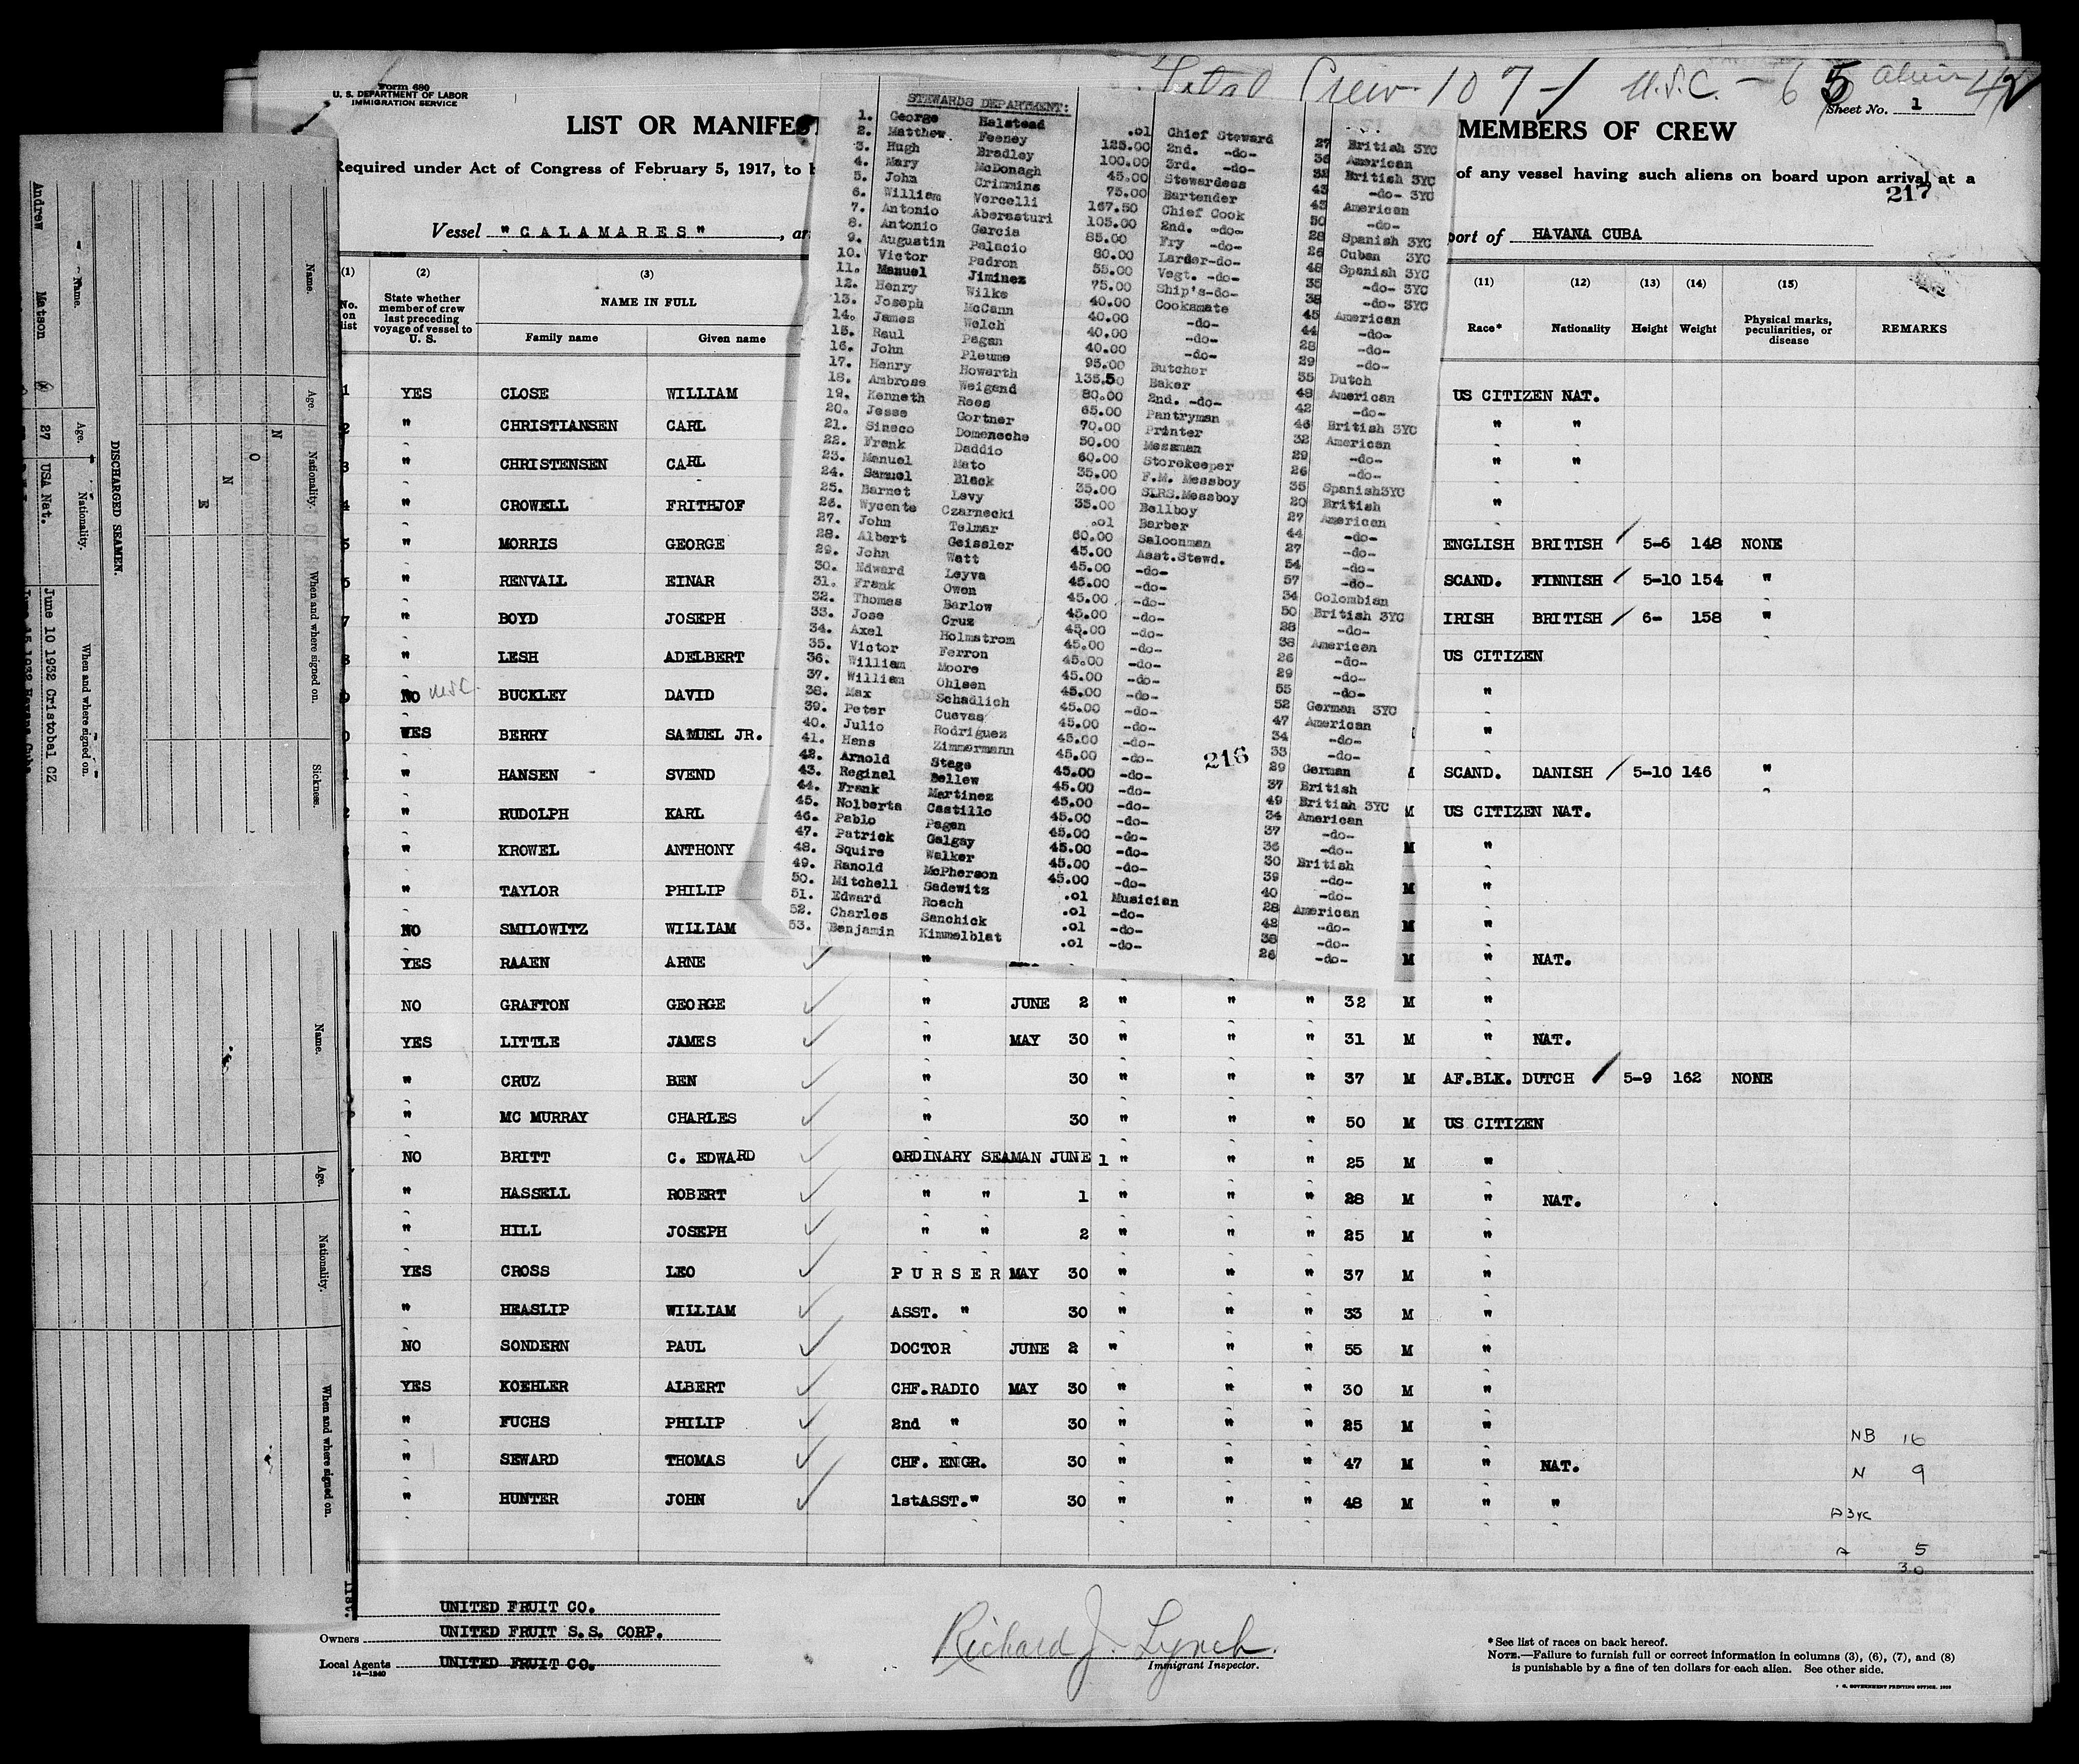 Form 680
U. S. DEPARTMENT OF LABOR
IMMIGRATION SERVICE
Total Crew 107 U.S.C. - 65 Alien 42
Sheet No. 1
LIST OR MANIFEST MEMBERS OF CREW
Required under Act of Congress of February 5, 1917, to b of any vessel having such aliens on board upon arrival at a
217
Vessel "CALAMARES" , ar port of HAVANA CUBA
(1) (2) (3) (11) (12) (13) (14) (15)
No. on list State whether member of crew last preceding voyage of vessel to U. S. NAME IN FULL Family name Given name Race* Nationality Height Weight Physical marks, peculiarities, or disease REMARKS
1 YES CLOSE WILLIAM US CITIZEN NAT.
2 " CHRISTIANSEN CARL " "
3 " CHRISTENSEN CARL " "
4 " CROWELL FRITHJOF "
5 " MORRIS GEORGE ENGLISH BRITISH 5-6 148 NONE
6 " RENVALL EINAR SCAND. FINNISH 5-10 154 "
7 " BOYD JOSEPH IRISH BRITISH 6- 158 "
8 " LESH ADELBERT US CITIZEN
NO U.S.C. BUCKLEY DAVID "
YES BERRY SAMUEL JR. "
" HANSEN SVEND SCAND. DANISH 5-10 146 "
" RUDOLPH KARL M US CITIZEN NAT.
" KROWEL ANTHONY M "
" TAYLOR PHILIP M "
NO SMILOWITZ WILLIAM M "
YES RAAEN ARNE " M " NAT.
NO GRAFTON GEORGE " JUNE 2 " " " 32 M "
YES LITTLE JAMES " MAY 30 " " " 31 M " NAT.
" CRUZ BEN " 30 " " " 37 M AF.BLK. DUTCH 5-9 162 NONE
" MC MURRAY CHARLES " 30 " " " 50 M US CITIZEN
NO BRITT C. EDWARD ORDINARY SEAMAN JUNE 1 " " " 25 M "
" HASSELL ROBERT " " 1 " " " 28 M " NAT.
" HILL JOSEPH " " 2 " " " 25 M "
YES CROSS LEO PURSER MAY 30 " " " 37 M "
" HEASLIP WILLIAM ASST. " 30 " " " 33 M "
NO SONDERN PAUL DOCTOR JUNE 2 " " " 55 M "
YES KOEHLER ALBERT CHF.RADIO MAY 30 " " " 30 M "
" FUCHS PHILIP 2nd " 30 " " " 25 M "
" SEWARD THOMAS CHF. ENGR. 30 " " " 47 M " NAT.
" HUNTER JOHN 1stASST." 30 " " " 48 M " "
NB 16
N 9
A 3YC
A 5
30
UNITED FRUIT CO.
Owners UNITED FRUIT S.S. CORP.
Local Agents UNITED FRUIT CO.
14—1240
Richard J. Lynch
Immigrant Inspector.
*See list of races on back hereof.
NOTE.—Failure to furnish full or correct information in columns (3), (6), (7), and (8)
is punishable by a fine of ten dollars for each alien. See other side.
STEWARDS DEPARTMENT:
1. George Halstead .01 Chief Steward 27 British 3YC
2. Matthew Feeney 125.00 2nd. -do- 36 American
3. Hugh Bradley 100.00 3rd. -do- 32 British 3YC
4. Mary McDonagh 45.00 Stewardess 43 -do- 3YC
5. John Crimmins 75.00 Bartender 43 American
6. William Vercelli 167.50 Chief Cook 50 -do-
7. Antonio Aberasturi 105.00 2nd. -do- 28 Spanish 3YC
8. Antonio Garcia 85.00 Fry -do- 26 Cuban 3YC
9. Augustin Palacio 80.00 Larder-do- 48 Spanish 3YC
10. Victor Padron 55.00 Vegt. -do- 35 -do- 3YC
11. Manuel Jiminez 75.00 Ship's-do- 38 -do- 3YC
12. Henry Wilke 40.00 Cooksmate 45 American
13. Joseph McCann 40.00 -do- 44 -do-
14. James Welch 40.00 -do- 28 -do-
15. Raul Pagan 40.00 -do- 29 -do-
16. John Pleume 95.00 Butcher 35 Dutch
17. Henry Howarth 135.50 Baker 48 American
18. Ambrose Weigand 80.00 2nd. -do- 42 -do-
19. Kenneth Rees 65.00 Pantryman 46 British 3YC
20. Jesse Gortner 70.00 Printer 32 American
21. Sineco Domeneche 50.00 Messman 29 -do-
22. Frank Daddio 60.00 Storekeeper 26 -do-
23. Manuel Mato 35.00 F.M. Messboy 35 Spanish3YC
24. Samuel Black 35.00 SLRS.Messboy 20 British
25. Barnet Levy 35.00 Bellboy 27 American
26. Wycente Czarnecki .01 Barber 44 -do-
27. John Telmar 60.00 Saloonman 27 -do-
28. Albert Geissler 45.00 Asst.Stewd. 54 -do-
29. John Watt 45.00 -do- 57 -do-
30. Edward Leyva 45.00 -do- 34 Colombian
31. Frank Owen 45.00 -do- 50 British 3YC
32. Thomas Barlow 45.00 -do- 28 -do-
33. Jose Cruz 45.00 -do- 38 American
34. Axel Holmstrom 45.00 -do- 26 -do-
35. Victor Ferron 45.00 -do- 29 -do-
36. William Moore 45.00 -do- 55 -do-
37. William Ohlsen 45.00 -do- 52 German 3YC
38. Max Schadlich 45.00 -do- 47 American
39. Peter Cuevas 45.00 -do- 34 -do-
40. Julio Rodriguez 45.00 -do- 33 -do-
41. Hans Zimmermann 45.00 -do- 29 German
42. Arnold Stege 45.00 -do- 37 British
43. Reginal Bellew 45.00 -do- 49 British 3YC
44. Frank Martinez 45.00 -do- 34 American
45. Nolberta Castillo 45.00 -do- 37 -do-
46. Pablo Pagan 45.00 -do- 36 -do-
47. Patrick Galgay 45.00 -do- 30 British
48. Squire Walker 45.00 -do- 39 -do-
49. Ranold McPherson 45.00 -do- 40 -do-
50. Mitchell Sadewitz .01 Musician 28 American
51. Edward Roach .01 -do- 42 -do-
52. Charles Sanchick .01 -do- 38 -do-
53. Benjamin Kimmelblat .01 -do- 26 -do-
216
DISCHARGED SEAMEN.
Name. Age. Nationality. When and where signed on.
Andrew Matson 27 USA Nat. June 10 1932 Cristobal CZ
Name. Age. Nationality. When and where signed on. Sickness.
N
O
N
E
Name. Age. Nationality. When and where signed on.